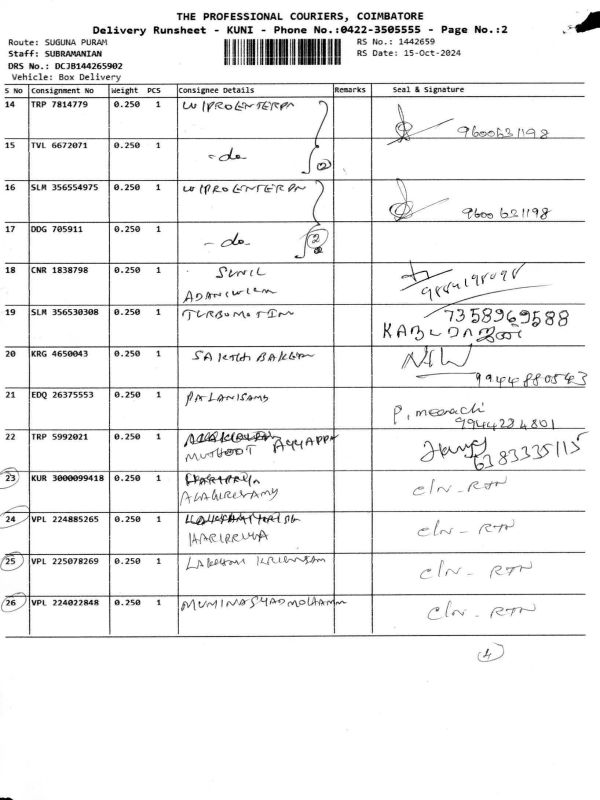 THE PROFESSIONAL COURIERS, COIMBATORE
Delivery Runsheet - KUNI - Phone No.:0422-3505555 - Page No.:2
Route: SUGUNA PURAM
RS No.: 1442659
Staff: SUBRAMANIAN
RS Date: 15-Oct-2024
DRS No.: DCJB144265902
Vehicle: Box Delivery
S No Consignment No Weight PCS Consignee Details Remarks Seal & Signature
14 TRP 7814779 0.250 1 WIPROENTERPN 9600631198
15 TVL 6672071 0.250 1 -do 2
16 SLM 356554975 0.250 1 WIPROENTERPN 9600621198
17 DDG 705911 0.250 1 -do 2
18 CNR 1838798 0.250 1 SUNIL
19 SLM 356530308 0.250 1 TURBOMOTION 7358969588
20 KRG 4650043 0.250 1 SAKTHI BAKERY 9944880543
21 EDQ 26375553 0.250 1 PALANISAMY P. meenachi
9944224801
22 TRP 5992021 0.250 1 MUTHOOT AYYAPPA 6383335115
23 KUR 3000099418 0.250 1 ALAGIRISAMY CLN-RTN
24 VPL 224885265 0.250 1 HARIPRIYA CLN-RTN
25 VPL 225078269 0.250 1 LAKSHMI CLN-RTN
26 VPL 224022848 0.250 1 CLN-RTN
4